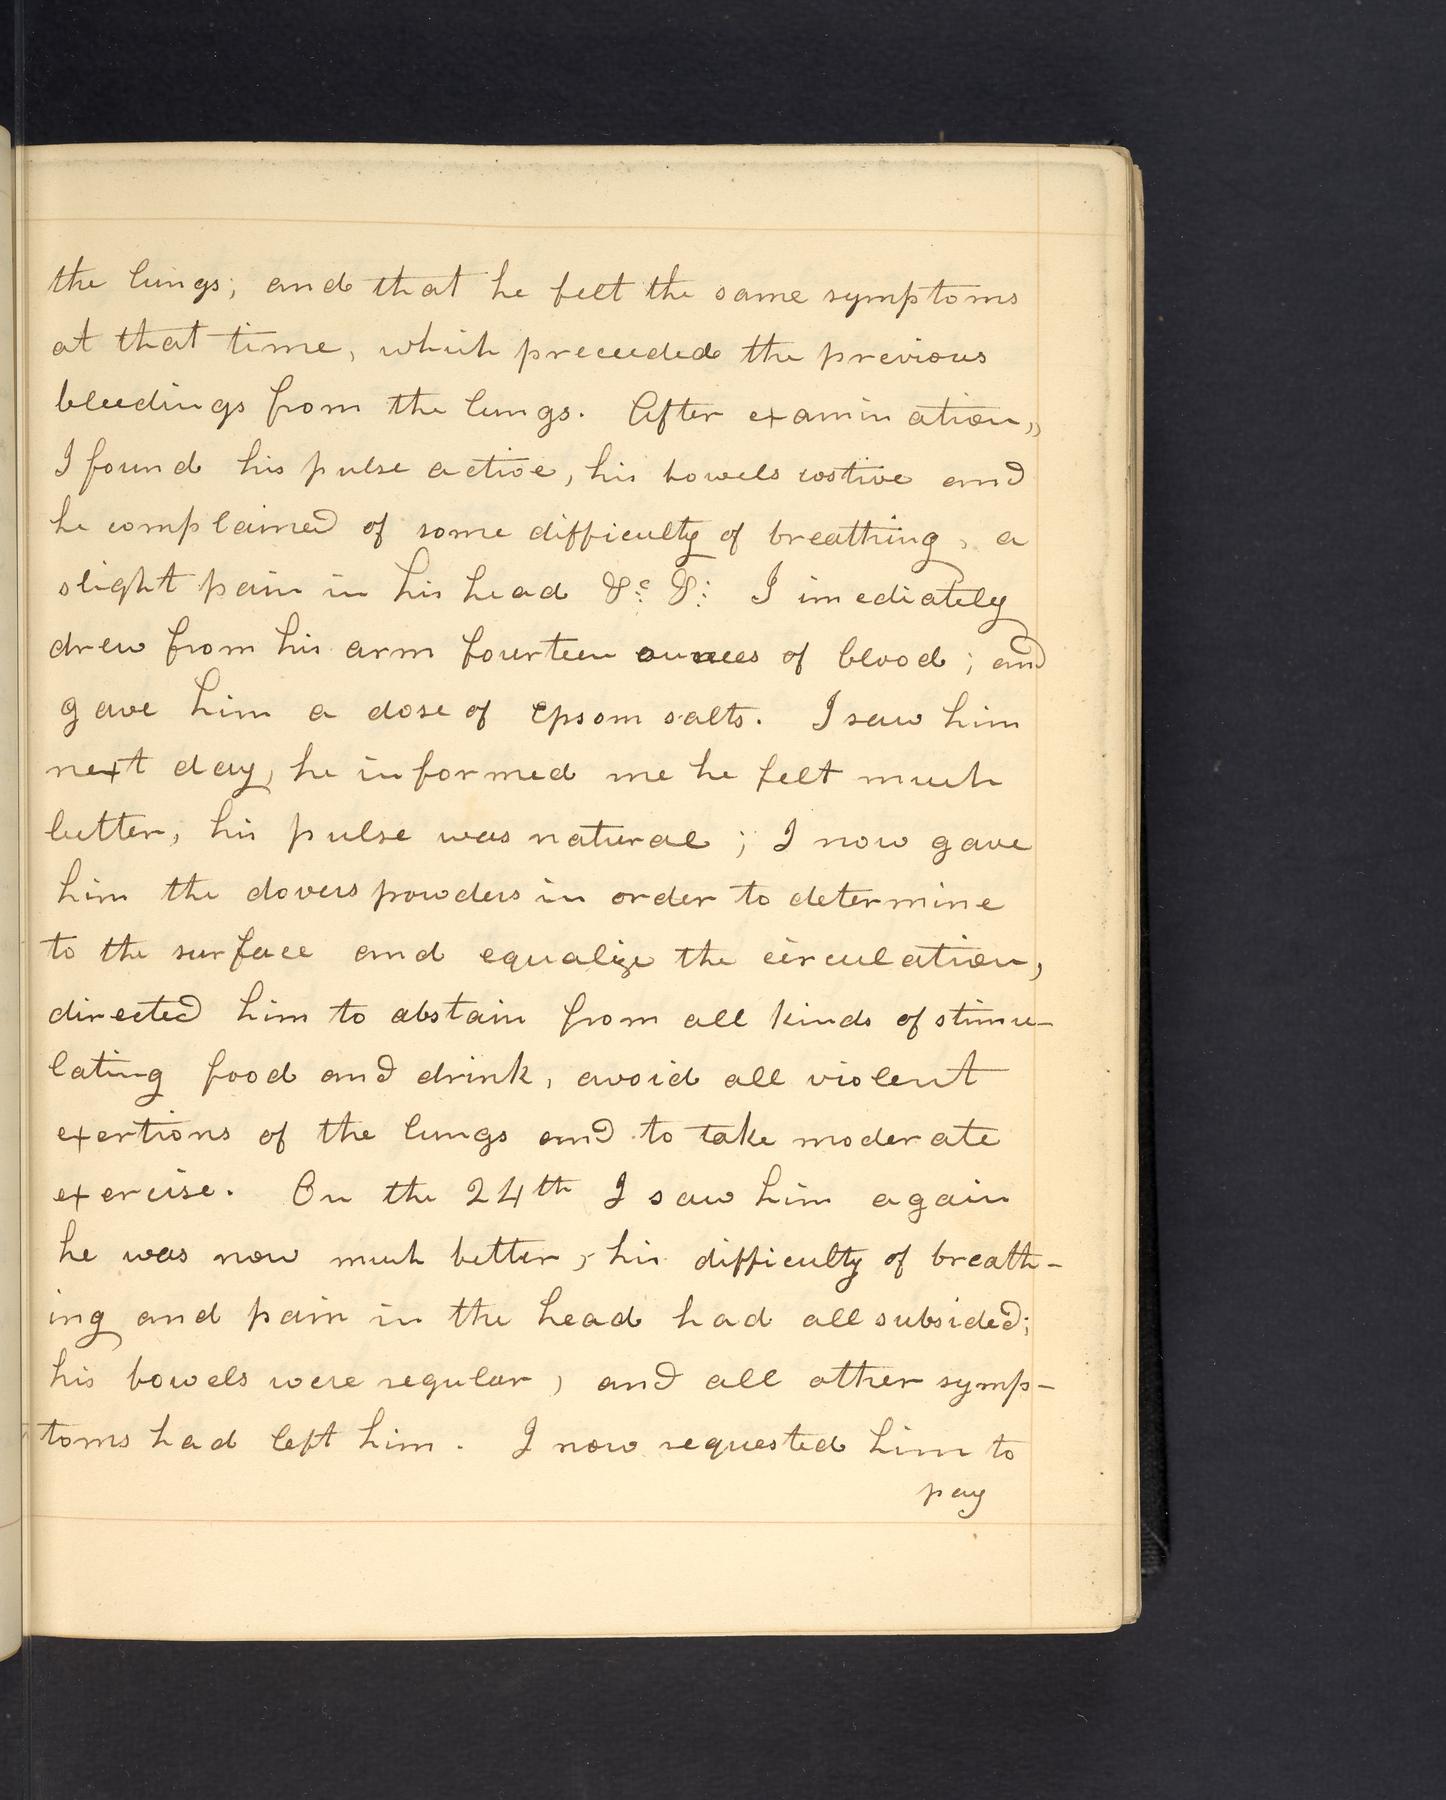 the lungs; and that he felt the same symptoms
at that time, which preceeded the previous
bleedings from the lungs. After examination,,
I found his pulse active, his bowels costive and
he complained of some difficulty of breathing, a
slight pain in his head &c &: I imediately
drew from his arm fourteen ounces of blood; and
gave him a dose of Epsom salts. I saw him
next day, he informed me he felt much
better, his pulse was natural; I now gave
him the dovers powders in order to determine
to the surface and equalize the circulation,
directed him to abstain from all kinds of stimu-
lating food and drink, avoid all violent
exertions of the lungs and to take moderate
exercise. On the 24th I saw him again
he was now much better, his difficulty of breath-
ing and pain in the head had all subsided;
his bowels were regular, and all other symp-
toms had left him. I now requested him to
pay